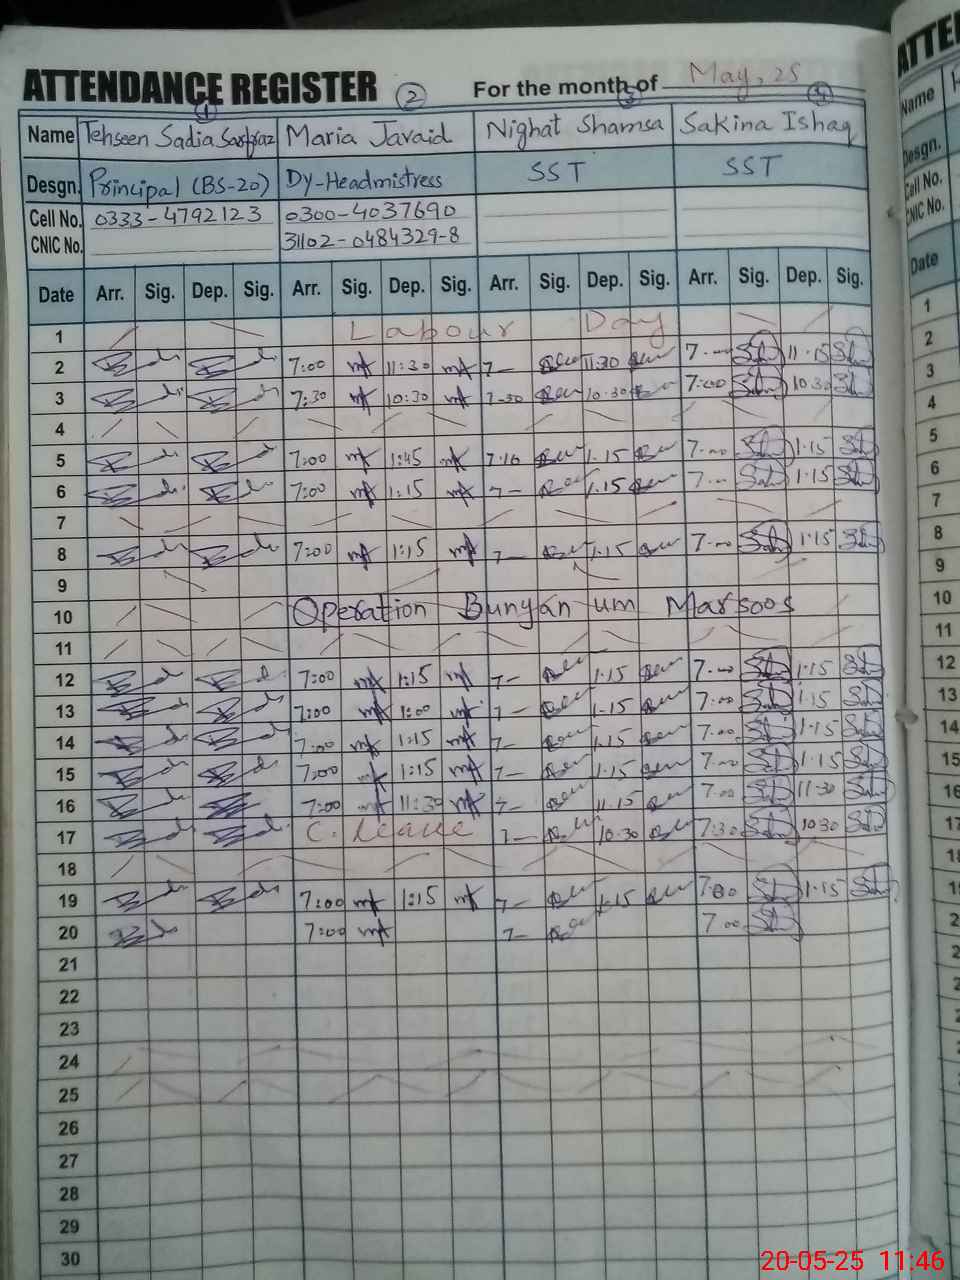 ATTENDANCE REGISTER For the month of May, 25
1 2 3 4
Name Tehseen Sadia Sarfraz Maria Javaid Nighat Shamsa Sakina Ishaq
Desgn. Principal (BS-20) Dy-Headmistress SST SST
Cell No. 0333-4792123 0300-4037690
CNIC No. 31102-0484329-8
Date Arr. Sig. Dep. Sig. Arr. Sig. Dep. Sig. Arr. Sig. Dep. Sig. Arr. Sig. Dep. Sig.
1 Labour Day
2 7:00 11:30 7- 11.30 7.- 11.15
3 7:30 10:30 7-30 10.30 7:00 10.30
4
5 7:00 1:45 7.10 1.15 7.00 1.15
6 7:00 1:15 7- 1.15 7.- 1.15
7
8 7:00 1:15 7- 1.15 7.00 1.15
9
10 Operation Bunyan um Marsoos
11
12 7:00 1:15 7- 1.15 7.00 1.15
13 7:00 1:00 7- 1.15 7.00 1.15
14 7:00 1:15 7- 1.15 7.00 1.15
15 7:00 1:15 7- 1.15 7.00 1.15
16 7:00 11:30 7- 11.15 7.00 11.30
17 C. leave 7- 10.30 7:30 10.30
18
19 7:00 1:15 7- 1.15 7:00 1.15
20 7:00 7- 7.00
21
22
23
24
25
26
27
28
29
30
ATTE
Name
Desgn.
Cell No.
CNIC No.
Date
1
2
3
4
5
6
7
8
9
10
11
12
13
14
15
16
17
20-05-25 11:46